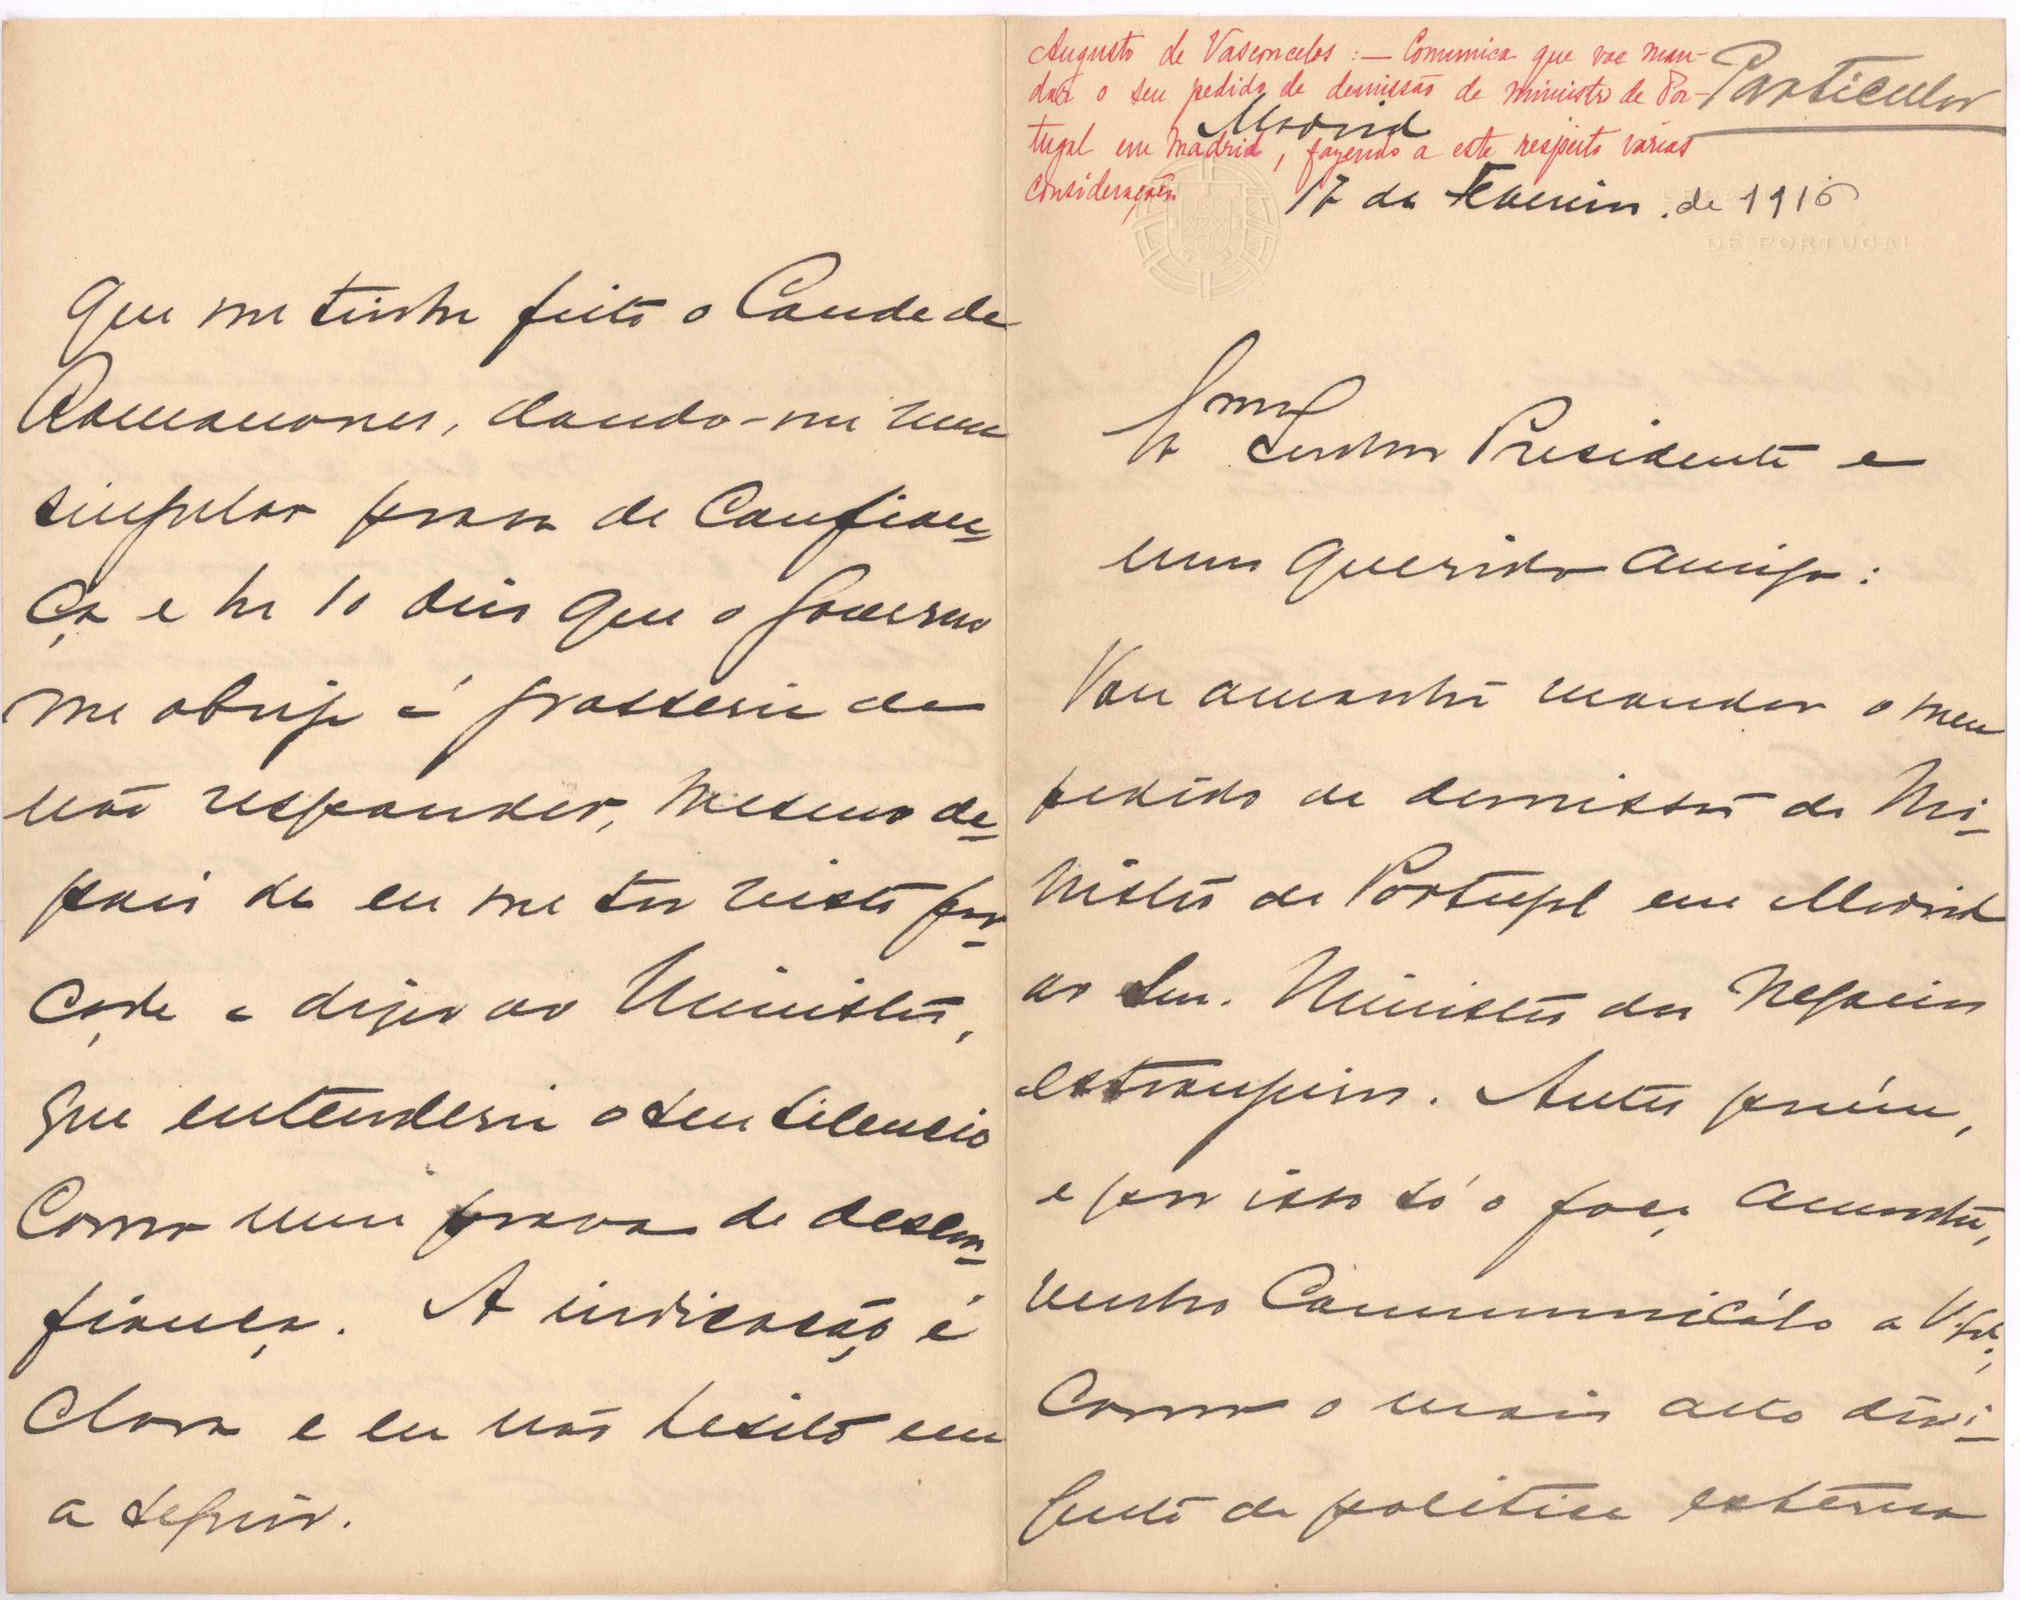 Augusto de Vasconcelos: — Comunica que vae man-
dar o seu pedido de demissão de ministro de Por-
tugal em Madrid, fazendo a este respeito várias
considerações
Particular
Madrid
17 de Fevereiro de 1916
DE PORTUGAL
Exmo
Senhor Presidente e
meu querido amigo:
Vou amanhã mandar o meu
pedido de demissão de Mi-
nistro de Portugal em Madrid
ao Snr. Ministro dos Negocios
estrangeiros. Antes porém,
e por isso só o faço amanhã,
venho communicál-o a V. Exª,
como o mais alto diri-
gente da politica externa
que me tinha feito o Conde de
Romanones, dando-me uma
singular prova de confian-
ça e ha 10 dias que o Governo
me obriga á grosseria de
não responder, mesmo de-
pois de eu me ter visto for-
çado a dizer ao Ministro,
que entenderia o seu silencio
como uma prova de descon-
fiança. A indicação é
clara e eu não hesito em
a seguir.